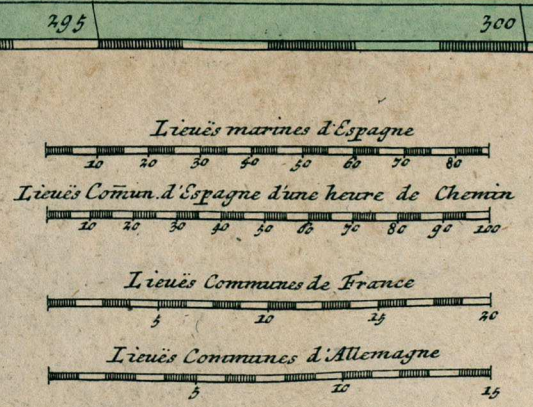 295 300
Lieuës marines d'Espagne
10 20 30 40 50 60 70 80
Lieuës Com̄un. d'Espagne d'une heure de Chemin
10 20 30 40 50 60 70 80 90 100
Lieuës Communes de France
5 10 15 20
Lieuës Communes d'Allemagne
5 10 15